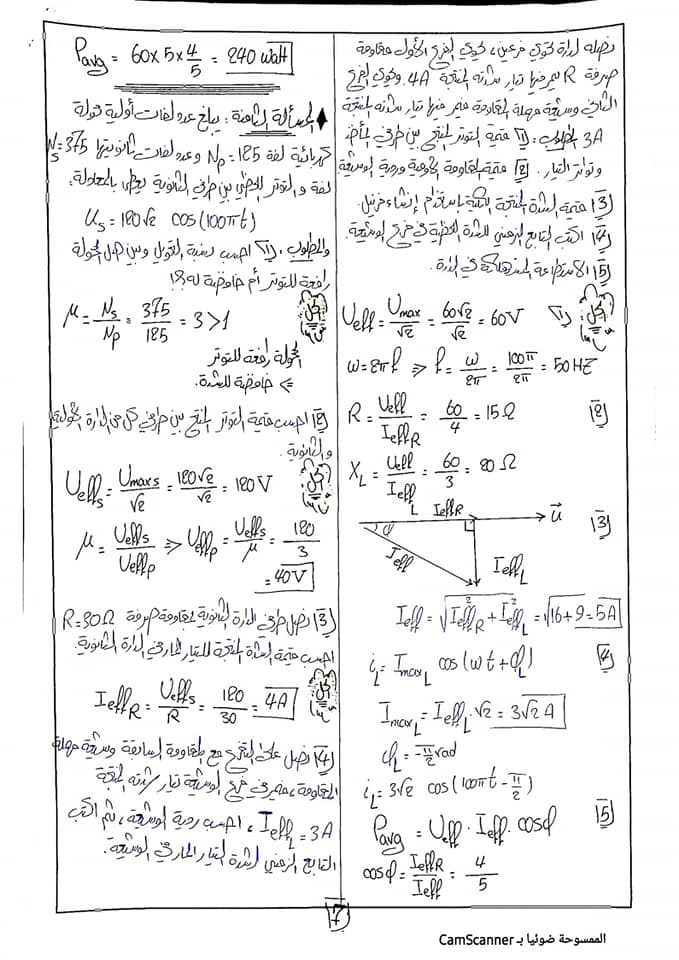 نصله لدارة تحوي فرعين، يحوي الفرع الأول مقاومة
صرفة R فيمر فيها تيار شدته المنتجة 4A ويحوي الفرع
الثاني وشيعة مهملة المقاومة فيمر فيها تيار شدته المنتجة
3A المطلوب: 1] قيمة التوتر المنتج بين طرفي المأخذ
وتواتر التيار. 2] قيمة المقاومة الأومية وردية الوشيعة
3] قيمة الشدة المنتجة الكلية باستخدام إنشاء فرينل.
4] اكتب التابع الزمني للشدة اللحظية في فرع الوشيعة.
5] الاستطاعة المستهلكة في الدارة.
الحل
1] Ueff = Umax/√2 = 60√2/√2 = 60V
ω=2πf ⇒ f = ω/2π = 100π/2π = 50 HZ
2] R = Ueff/IeffR = 60/4 = 15Ω
XL = Ueff/IeffL = 60/3 = 20Ω
3] IeffR U⃗
φ Ieff IeffL
Ieff = √(I²effR + I²effL) = √(16+9) = 5A
4] iL = ImaxL cos(ωt+φL)
ImaxL = IeffL.√2 = 3√2 A
φL = -π/2 rad
iL = 3√2 cos(100πt - π/2)
5] Pavg = Ueff . Ieff . cosφ
cosφ = IeffR/Ieff = 4/5
Pavg = 60×5×4/5 = 240 watt
المسألة الثامنة: يبلغ عدد لفات أولية محولة
كهربائية Np = 125 لفة وعدد لفات ثانويتها Ns = 375
لفة والتوتر اللحظي بين طرفي الثانوية يعطى بالمعادلة:
Us = 120√2 cos(100πt)
والمطلوب: 1] احسب نسبة التحويل وبين هل المحولة
رافعة للتوتر أم خافضة له؟!
الحل
μ = Ns/Np = 375/125 = 3 > 1
المحولة رافعة للتوتر
⇐ خافضة للشدة.
2] احسب قيمة التوتر المنتج بين طرفي كل من الدارة الأولية
والثانوية.
الحل
Ueffs = Umaxs/√2 = 120√2/√2 = 120V
μ = Ueffs/Ueffp ⇒ Ueffp = Ueffs/μ = 120/3
= 40V
3] نصل طرفي الدارة الثانوية بمقاومة صرفة R=30Ω
احسب قيمة الشدة المنتجة للتيار المار في الدارة الثانوية.
الحل
IeffR = Ueffs/R = 120/30 = 4A
4] نصل على التفرع مع المقاومة السابقة وشيعة مهملة
المقاومة، فيمر في فرع الوشيعة تيار شدته المنتجة
IeffL = 3A، احسب ردية الوشيعة، ثم اكتب
التابع الزمني لشدة التيار المار في الوشيعة.
7
الممسوحة ضوئيا بـ CamScanner